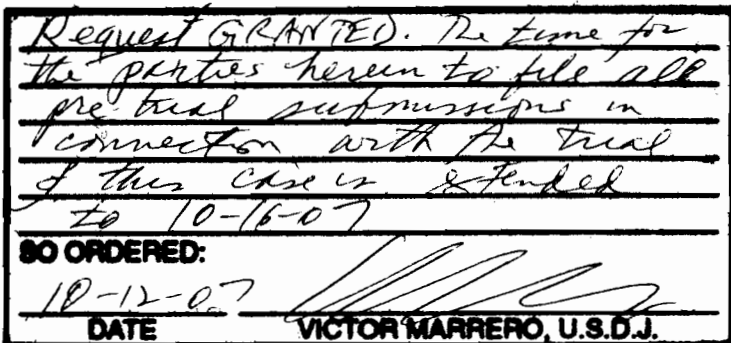 Request GRANTED. The time for
the parties herein to file all
pre trial submissions in
connection with the trial
of this case is extended
to 10-16-07
SO ORDERED:
10-12-07
DATE VICTOR MARRERO, U.S.D.J.